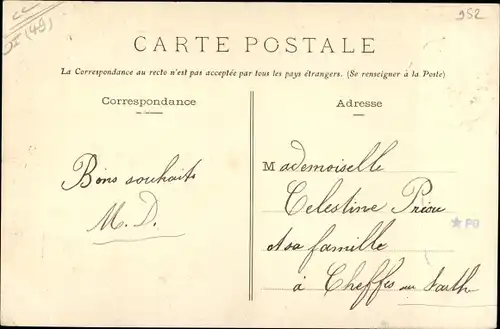 952
(49)
CARTE POSTALE
La Correspondance au recto n'est pas acceptée par tous les pays étrangers. (Se renseigner à la Poste)
Correspondance
Adresse
Bons souhaits
M. D.
Mademoiselle
Celestine Priou
et sa famille
à Cheffes sur Sarthe
PO